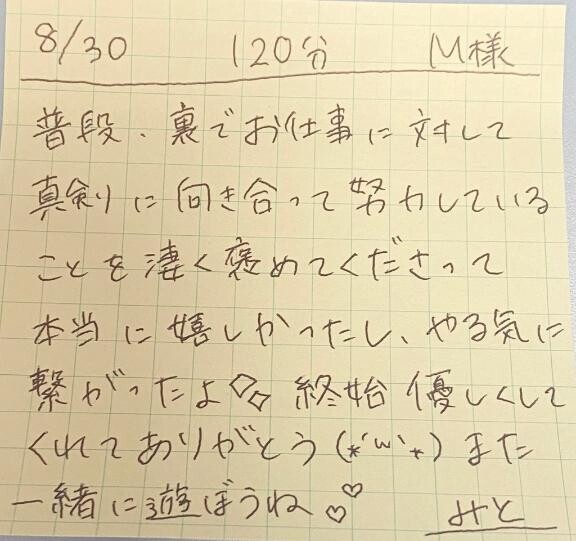 8/30 120分 M様
普段、裏でお仕事に対して
真剣に向き合って努力している
ことを凄く褒めてくださって
本当に嬉しかったし、やる気に
繋がったよ◇◇ 終始優しくして
くれてありがとう(*´ω`*)また
一緒に遊ぼうね♡♡ みと